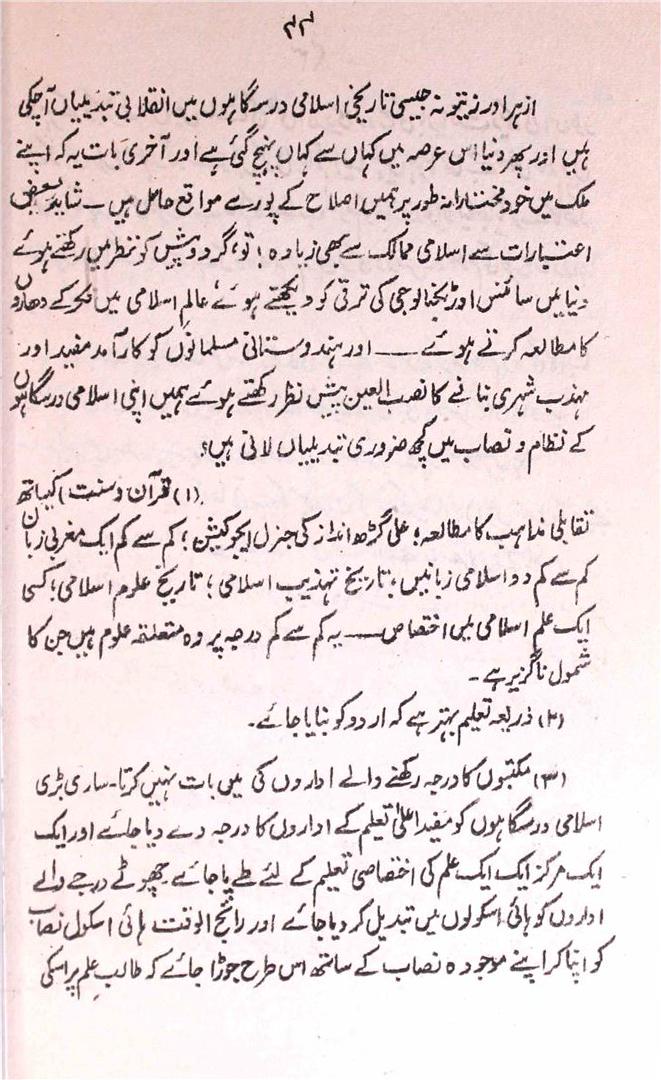 ۴۴
ازہر اور زیتونہ جیسی تاریخی اسلامی درسگاہوں میں انقلابی تبدیلیاں آچکی
ہیں اور پھر دنیا اس عرصہ میں کہاں سے کہاں پہنچ گئی ہے اور آخری بات یہ کہ اپنے
ملک میں خود مختارانہ طور پر ہمیں اصلاح کے پورے مواقع حاصل ہیں ۔ شاید بعض
اعتبارات سے اسلامی ممالک سے بھی زیادہ ! تو، گردوپیش کو نظر میں رکھتے ہوئے
دنیا میں سائنس اور ٹیکنالوجی کی ترقی کو دیکھتے ہوئے عالم اسلامی میں فکر کے دھاروں
کا مطالعہ کرتے ہوئے ــــ اور ہندوستانی مسلمانوں کو کارآمد مفید اور
مہذب شہری بنانے کا نصب العین پیش نظر رکھتے ہوئے ہمیں اپنی اسلامی درسگاہوں
کے نظام و نصاب میں کچھ ضروری تبدیلیاں لانی ہیں؛
(۱) قرآن و سنت) کیساتھ
تقابلی مذاہب کا مطالعہ؛ علی گڑھ انداز کی جنرل ایجوکیشن؛ کم سے کم ایک مغربی زبان
کم سے کم دو اسلامی زبانیں، تاریخ تہذیب اسلامی؛ تاریخ علوم اسلامی؛ کسی
ایک علم اسلامی میں اختصاص ــــ یہ کم سے کم درجہ پر وہ متعلقہ علوم ہیں جن کا
شمول ناگزیر ہے ۔
(۲) ذریعہ تعلیم بہتر ہے کہ اردو کو بنایا جائے ۔
(۳) مکتبوں کا درجہ رکھنے والے اداروں کی میں بات نہیں کرتا ۔ ساری بڑی
اسلامی درسگاہوں کو مفید اعلیٰ تعلیم کے اداروں کا درجہ دے دیا جائے اور ایک
ایک مرکز ایک ایک علم کی اختصاصی تعلیم کے لئے طے پا جائے چھوٹے درجے والے
اداروں کو ہائی اسکولوں میں تبدیل کر دیا جائے اور رائج الوقت ہائی اسکول نصاب
کو اپنا کر اپنے موجودہ نصاب کے ساتھ اس طرح جوڑا جائے کہ طالب علم پر اسکی